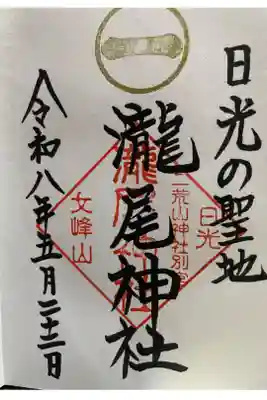 日光の聖地
日光
二荒山神社別宮
瀧尾神社
瀧尾神社
女峰山
令和八年五月二十三日